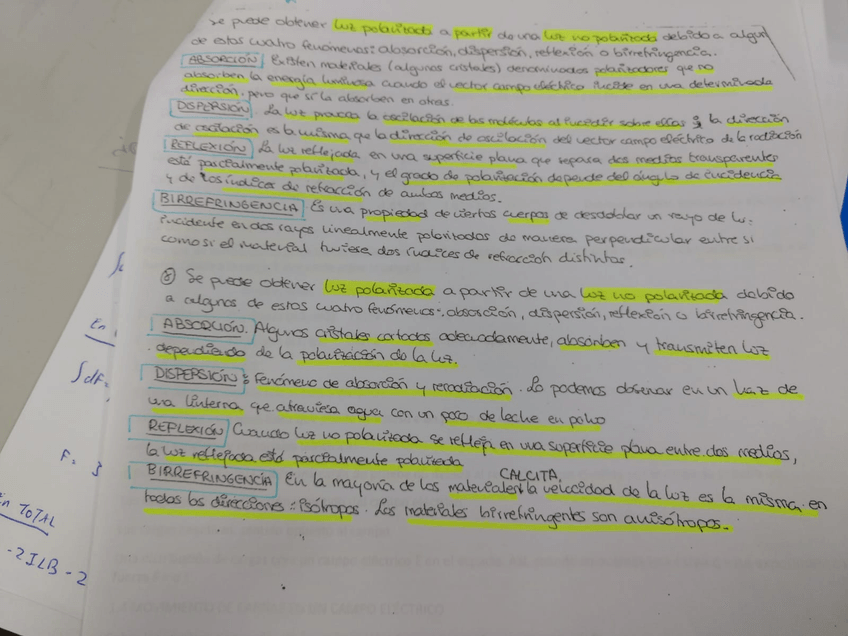 se puede obtener luz polarizada a partir de una luz no polarizada debido a algun
de estos cuatro fenómenos: absorción, dispersión, reflexión o birrefringencia.
ABSORCIÓN: Existen materiales (algunos cristales) denominados polarizadores que no
absorben la energía luminosa cuando el vector campo eléctrico incide en una determinada
dirección, pero que sí la absorben en otras.
DISPERSIÓN: La luz provoca la oscilación de las moléculas al incidir sobre ellas y la dirección
de oscilación es la misma que la dirección de oscilación del vector campo eléctrico de la radiación
REFLEXIÓN La luz reflejada en una superficie plana que separa dos medios transparentes
está parcialmente polarizada, y el grado de polarización depende del ángulo de incidencia
y de los índices de refracción de ambos medios.
BIRREFRINGENCIA Es una propiedad de ciertos cuerpos de desdoblar un rayo de lu
incidente en dos rayos linealmente polarizados de manera perpendicular entre sí
como si el material tuviese dos índices de refracción distintos.
Se puede obtener luz polarizada a partir de una luz no polarizada debido
a algunos de estos cuatro fenómenos: absorción, dispersión, reflexión o birrefringencia.
ABSORCIÓN. Algunos cristales cortados adecuadamente, absorben y transmiten luz
dependiendo de la polarización de la luz.
DISPERSIÓN: Fenómeno de absorción y rerradiación. Lo podemos observar en un haz de
una linterna que atraviesa agua con un poco de leche en polvo
REFLEXIÓN Cuando luz no polarizada se refleja en una superficie plana entre dos medios,
la luz reflejada está parcialmente polarizada
CALCITA
BIRREFRINGENCIA En la mayoría de los materiales, la velocidad de la luz es la misma en
todas las direcciones: isótropos. Los materiales birrefringentes son anisótropos.
En
∫dF=
F = 3
En TOTAL
-2ILB-2